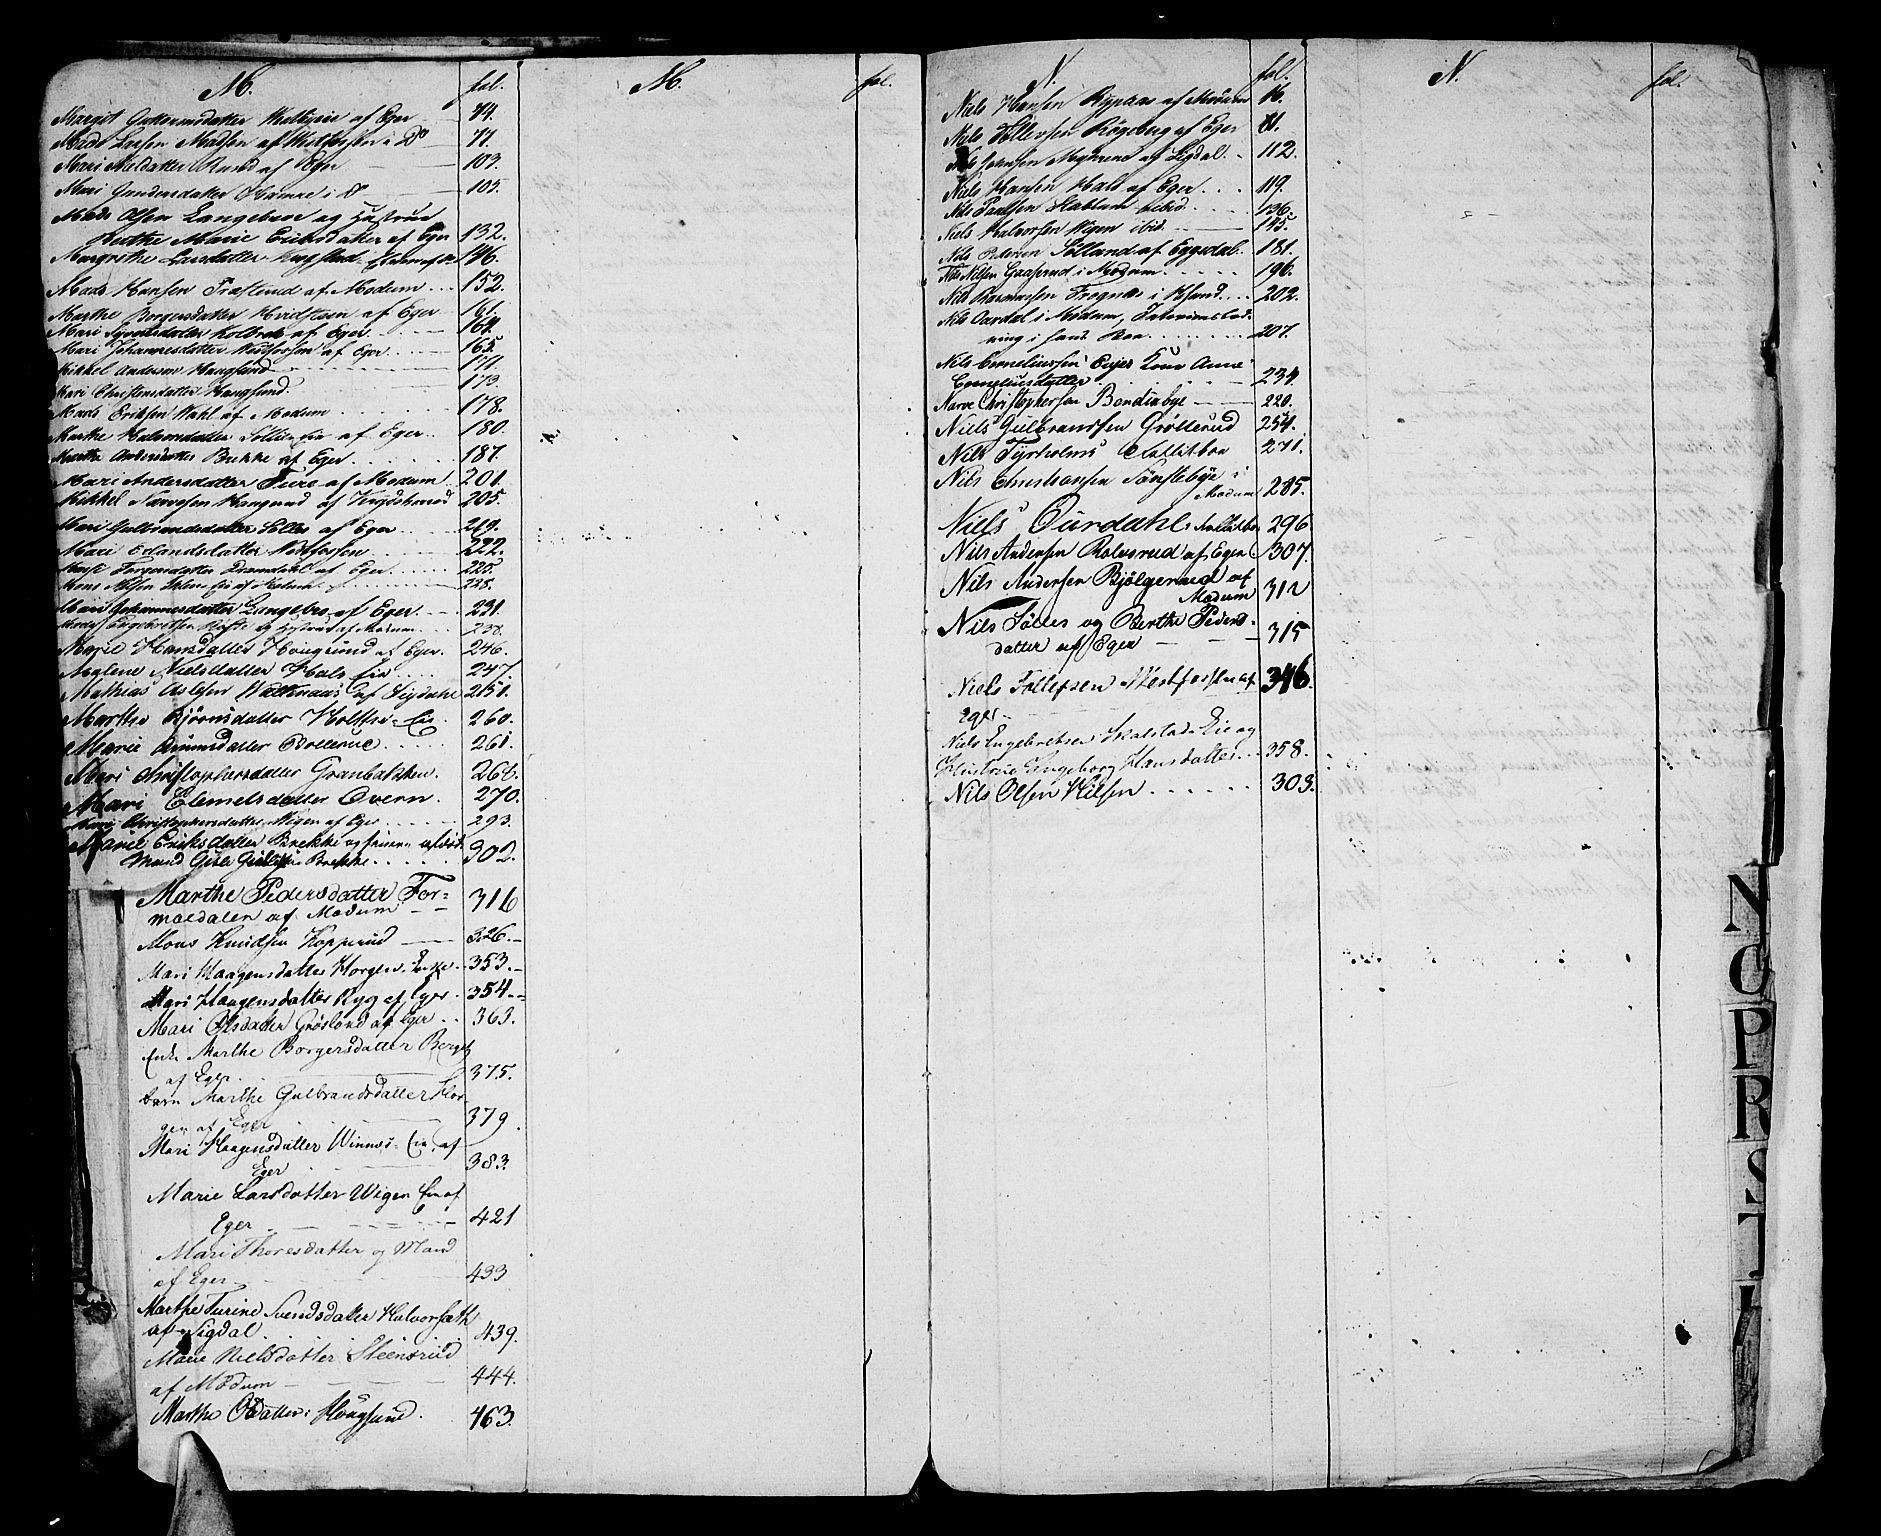 M. fol. M. fol.
Margit Guttormsdatter af Eger 74.
Mads Larsen Madsen af Westfossen i Do 77.
Mari Nilsdatter Ruud af Eger 103.
Mari Gundersdatter Hamre i Do 105.
Mads Olsen Langebroe og Hustrue
Berthe Marie Eriksdatter af Eger 132.
Margrethe Larsdatter 146.
Mads Hansen af Modum 152.
Marthe Borgersdatter Hvidsteen af Eger 161.
Mari Syvertsdatter Kolbræk af Eger 164.
Mari Johannesdatter Westfossen af Eger 165.
Mikkel Andersen Haugsund 171.
Mari Christensdatter Haugsund 173.
Mads Eriksen Wahl af Modum 178.
Marthe Halvorsdatter af Eger 180.
Marthe Andersdatter Brekke af Eger 187.
Mari Andersdatter Fure af Modum 201.
Mikkel Narvesen Haugsund af 205.
Mari Gulbrandsdatter Solles af Eger 219.
Mari Erlandsdatter Westfossen 222.
Torgersdatter af Eger 225.
Mons Nilsen 228.
Mari Johannesdatter Langebro af Eger 231.
Engebretsen og Hustrue af Modum 238.
Marie Hansdatter Hougsund af Eger 246.
Maglene Nielsdatter Hals Eie 247.
Mathias Aslesen af Sigdal 251.
Marthe Bjørnsdatter Holthe-Eie 260.
Marie Amundsdatter Bollerud 261.
Mari Christophersdatter Granbakken 266.
Mari Clemetsdatter Overn 270.
Mari Christophersdatter Wigen af Eger 293.
Marie Eriksdatter Brekke og
Mand Brekke 302.
Marthe Pedersdatter For=
moedalen af Modum 316
Mons Knudsen Kopperud 326.
Mari Haagensdatter Horgen Enke 353.
Mari Haagensdatter Ryg af Eger 354.
Mari Olsdatter Grøslond af Eger 363.
Enke Marthe Borgersdatter Berget
af Eger 375.
barn Marthe Gulbrandsdatter Hor-
gen af Eger 379.
Mari Haagensdatter Winnes-Eie af
Eger 383.
Marie Larsdatter Wigen Eie af
Eger 421
Mari Thoresdatter og Mand
af Eger 433
Marthe Turine Svendsdatter Halvorsæth
af Sigdal 439.
Marie Nielsdatter Steensrud
af Modum 444.
Marthe Olsdatter Hougsund 463.
N. fol. N. fol.
Niels Hansen af Modum 16.
Niels Tollevsen Røgeberg af Eger 81.
Nils Johnsen af Sigdal 112.
Niels Hansen Hals af Eger 119.
Nils Paulsen Skablum ibid. 136.
Niels Halvorsen Wigen ibid 145.
Nils Pedersen Solland af Eggedal 181.
Nils Nilsen Gaaserud i Modum 196.
Nils Rasmussen Frognæs i Ksund 202.
Nils Aardal i Modum, Interimslad-
ning i hans Boe 207.
Nils Corneliussen Eiyes Kone Anne
Corneliusdatter 234.
Narve Christophersen Bondiabye 220.
Niels Gulbrandsen Grøllerud 254.
Nils Tyrholms Fallitboe 271.
Nils Christiansen Tønslebye i
Modum 285.
Niels Ourdahls Fallitboe 296
Nils Andersen Rolvsrud af Eger 307.
Nils Andersen Bjølgerud af
Modum 312
Nils Solles og Berthe Peders-
datter af Eger 315
Niels Tollefsen Westfossen af 346.
Eger
Niels Engebretsen Skalstad-Eie og
Hustrue Engeborg Hansdatter 358.
Nils Olsen Hilsen 303.
N
O
P
R
S
T